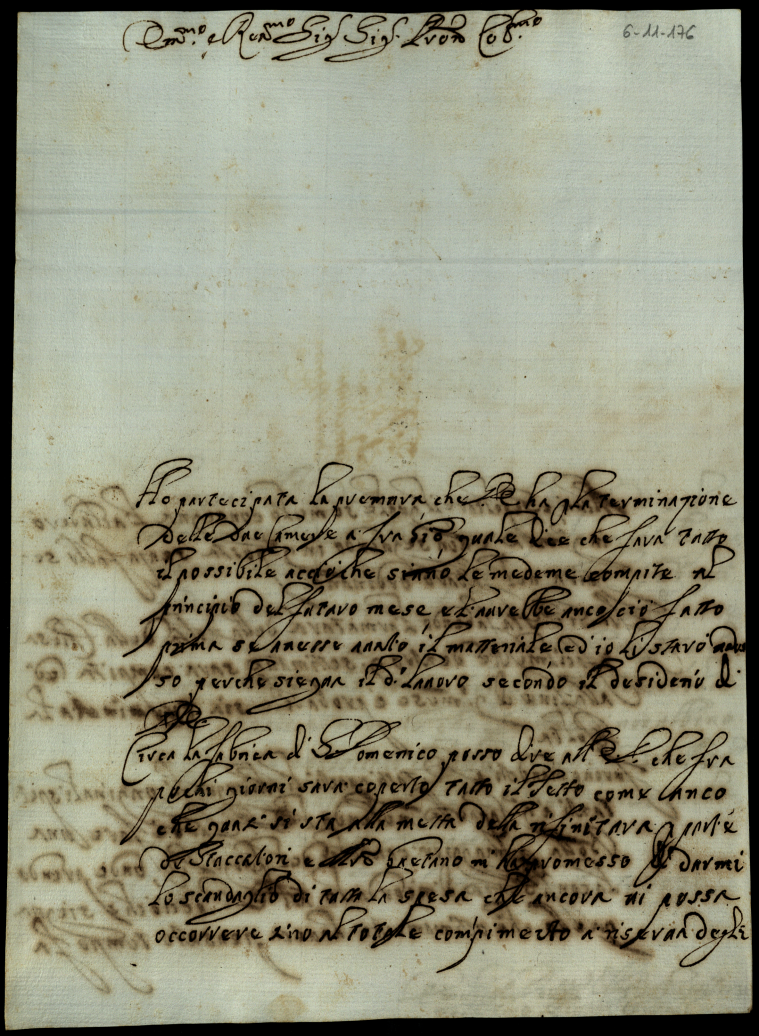 Em.mo e Ren.mo Sig.r Sig.r Pron Col.mo
6-11-176
Ho partecipata la premura che VE ha p la terminazione
delle due Camere a fra Gio quale dice che fara tutto
il possibile acciò che sinno le medeme compite al
principio del futuro mese e l'aurebbe anco ciò fatto
prima se auesse auuto il matteriale ed io li starò
so perche siegua il di lauoro secondo il desiderio di
VE
Circa la fabrica di S Domenico posso dire all VE che fra
pochi giorni sara coperto tutto il Tetto come anco
che quasi si sta alla metta della rifinitura p parte
de Staccatori e Gaetano m'ha promesso di darmi
lo scandaglio di tutta la spesa che ancora ui possa
occorrere sino al totale compimento a riserua degli